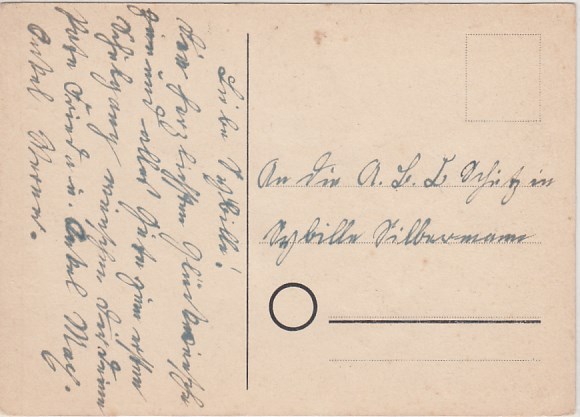 Liebe Sybille!
Die herzlichsten Glückwünsche
und alles Gute zum ersten
Schulgang wünschen Dir Deine
Tante Frieda u. Onkel Max.
Onkel Werner.
An die A. B. C Schützin
Sybille Silbermann